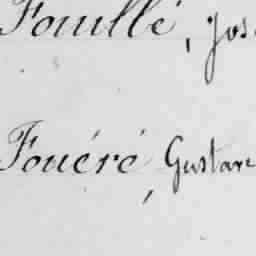 Fouillé, Jos
Fouéré, Gustave